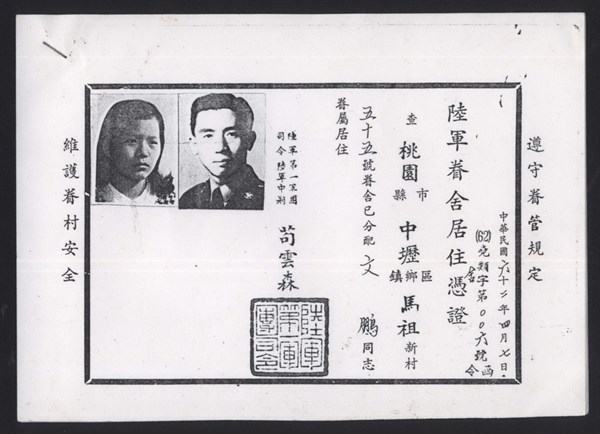 遵守眷管規定
中華民國六十二年四月七日
(62)堯類舍字第〇〇六號函令
陸軍眷舍居住憑證
查桃園市縣中壢區鄉鎮馬祖新村
五十五號眷舍已分配文鵬同志
眷屬居住
陸軍第一軍團
司令陸軍中將
苟雲森
維護眷村安全